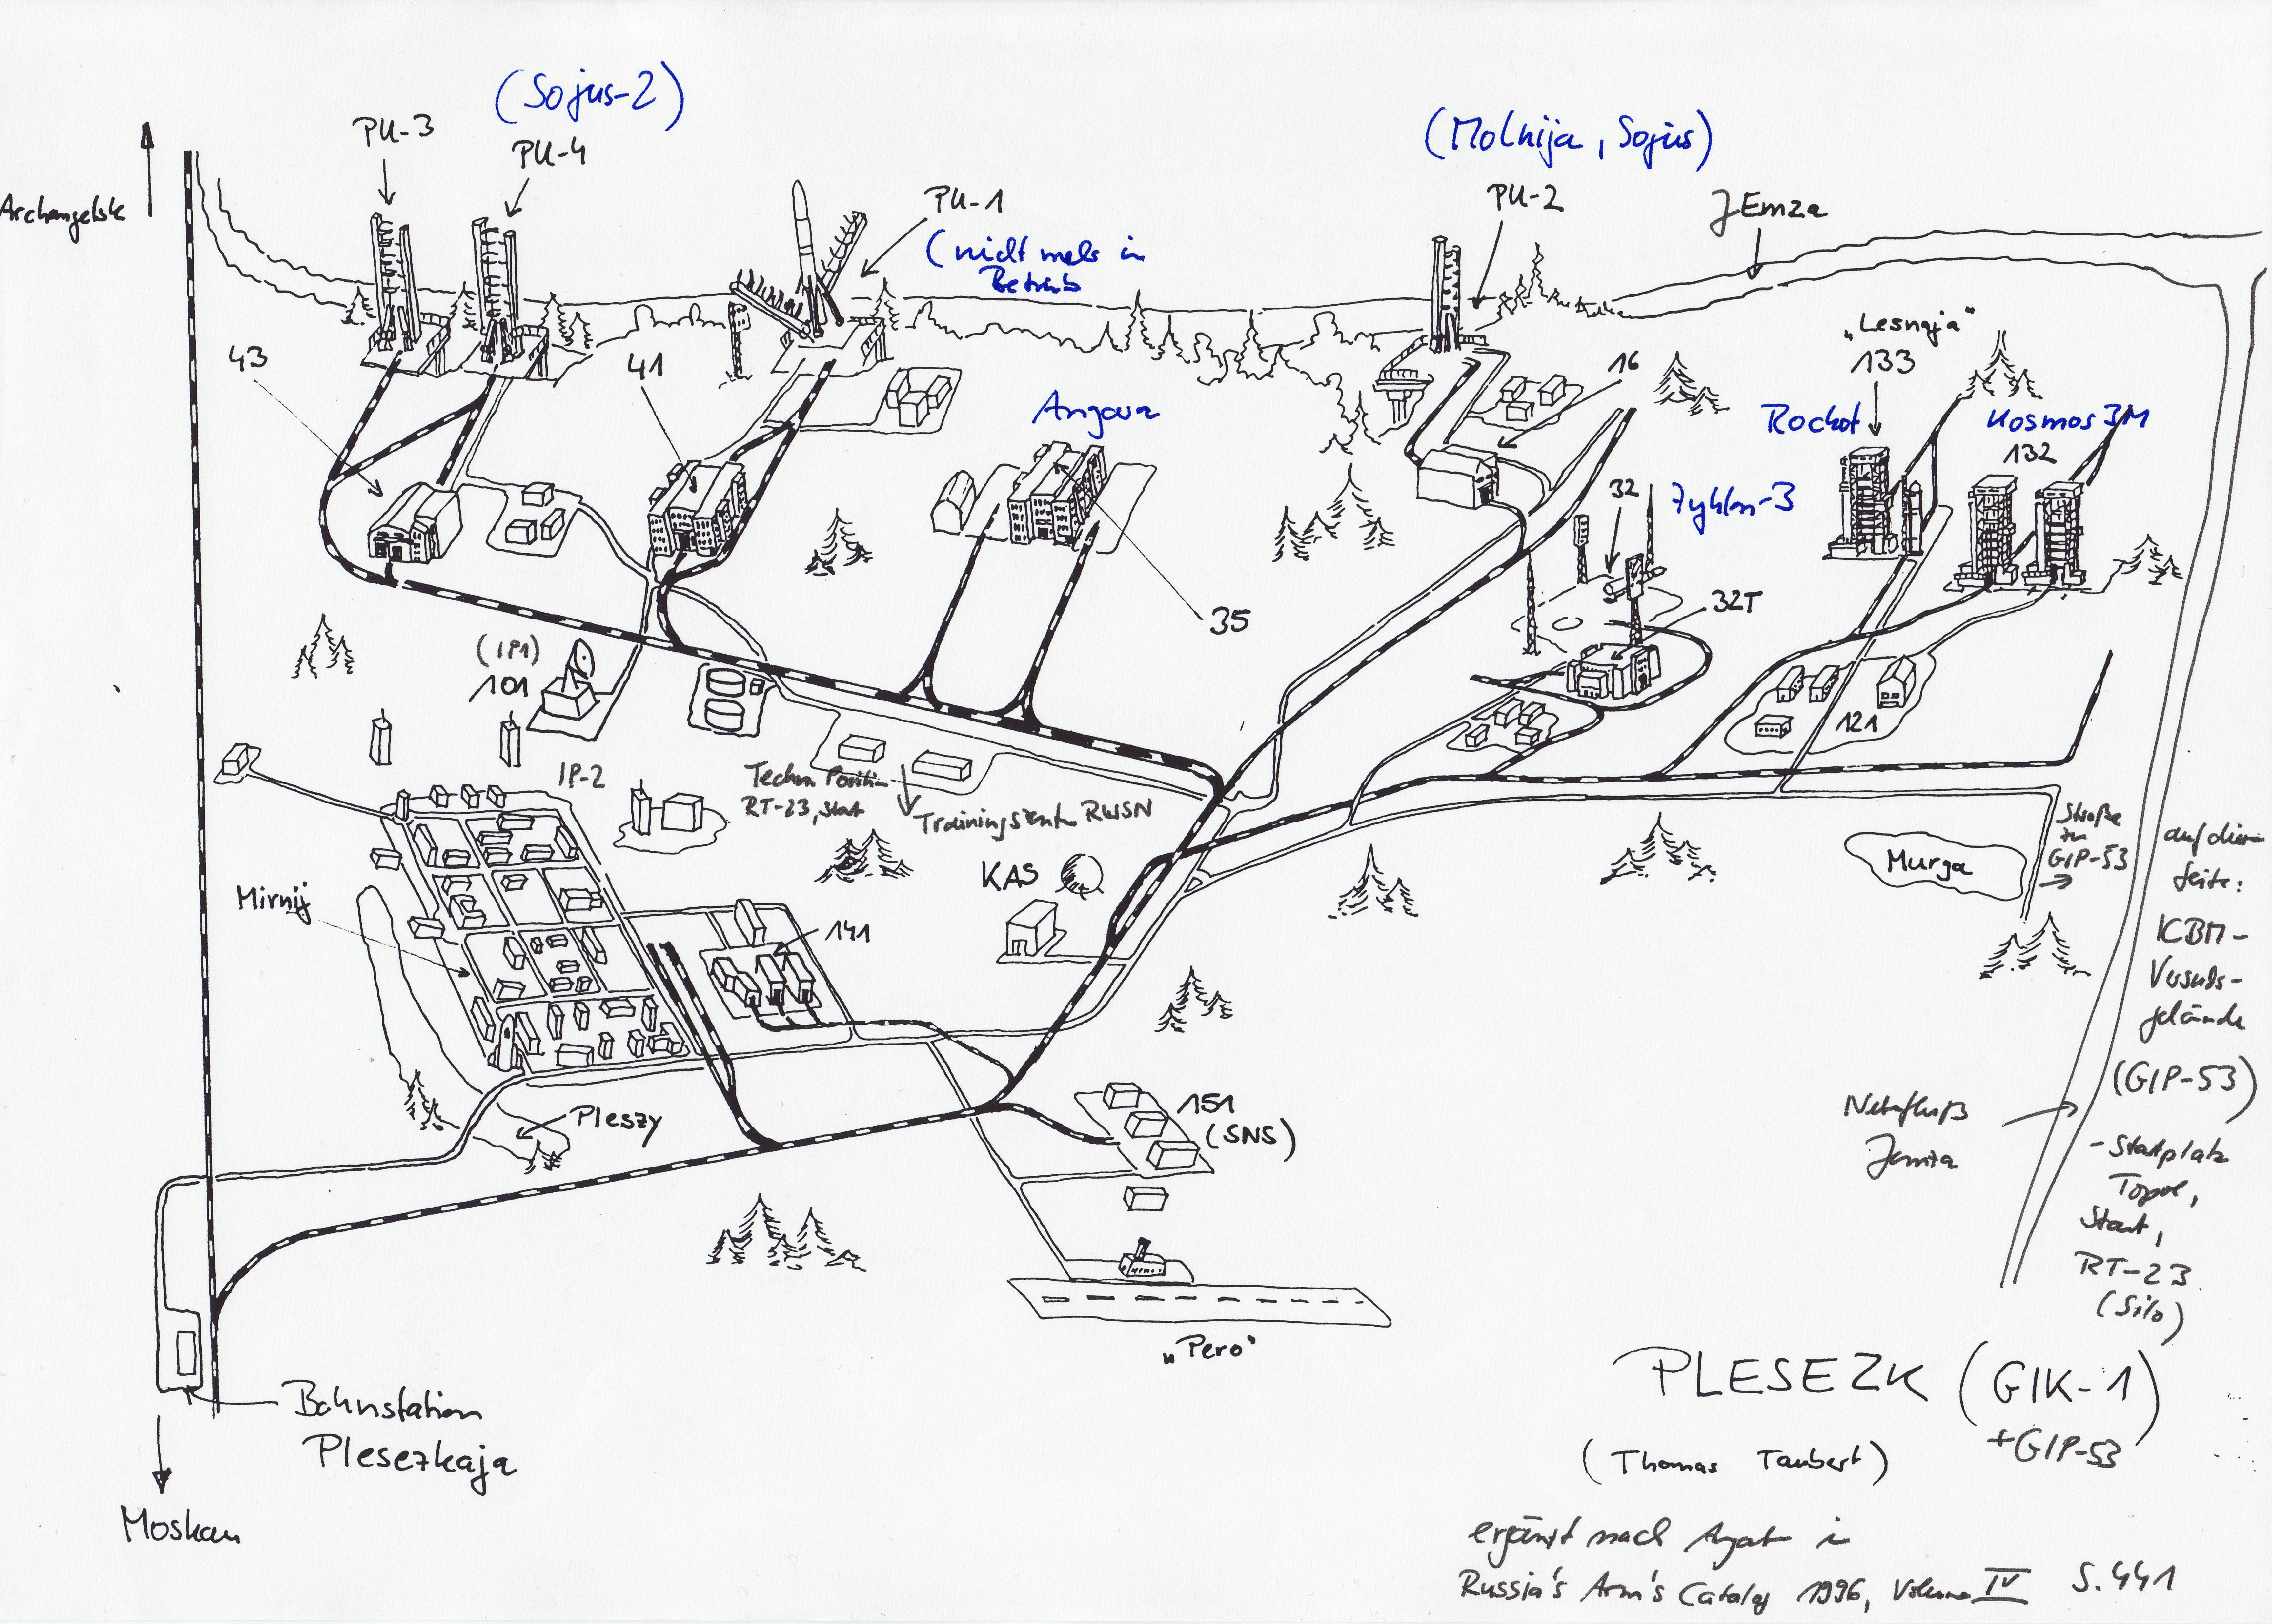 (Sojus-2)
PU-3
PU-4
Archangelsk
PU-1
(nicht mehr in
Betrieb
(Molnija, Sojus)
PU-2
JEmza
43
41
Angara
16
„Lesnaja“
133
Rockot
Kosmos 3M
132
32
Zyklon-3
32T
35
(IP1)
101
IP-2
Techn Position
RT-23, Start
Trainingszentr RWSN
121
KAS
Murga
Straße
zu
GIP-53
auf dieser
Seite:
ICBM-
Versuchs-
gelände
(GIP-53)
- Startplatz
Topol,
Start,
RT-23
(Silo)
Mirnij
141
Nebenfluß
Jemza
Pleszy
151
(SNS)
„Pero“
Bahnstation
Plesezkaja
Moskau
PLESEZK (GIK-1)
+GIP-53
(Thomas Taubert)
ergänzt nach in
Russia's Arm's Catalog 1996, Volume IV S.441